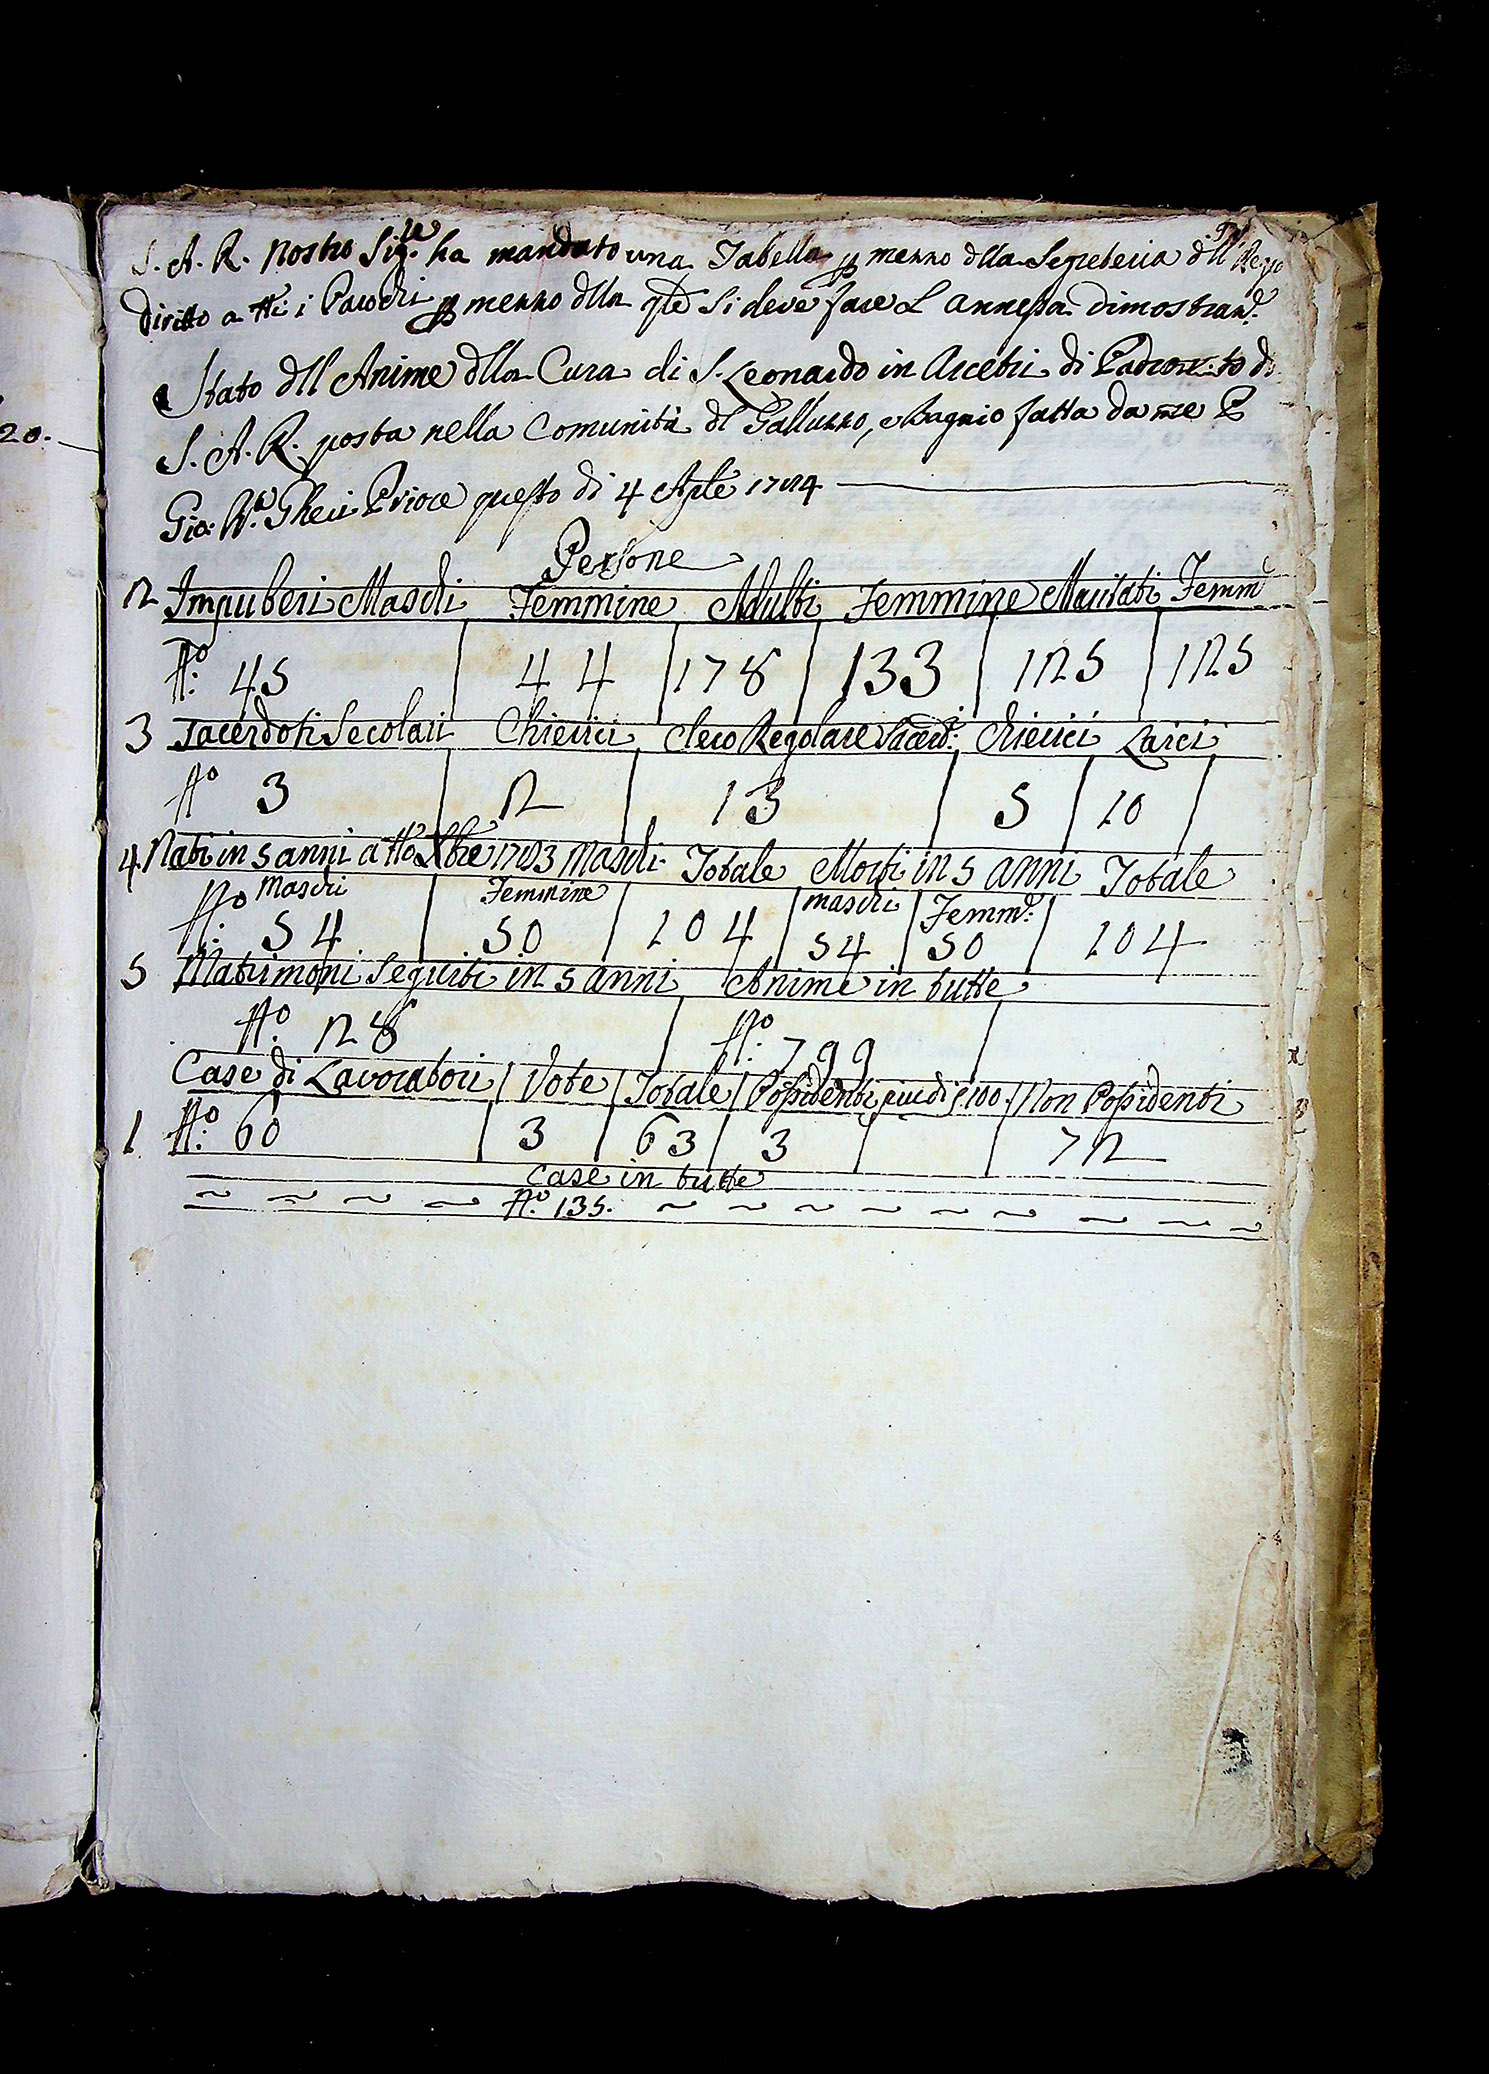 20.
S. A. R. Nostro Sig.re ha mandato una Tabella p mezzo dlla Segreteria dll Regio
Diritto a tti: i Parochi p mezzo dlla qle Si deve fare L annessa dimostraz.e
Stato dll Anime dlla Cura di S. Leonardo in Arcetri di Padron:to di
S. A. R. posta nella Comunità dl Galluzzo, e Bagnio fatta da me P
Gio: Priore questo di 4 Aple 1784
Persone
2 Impuberi Maschi Femmine Adulti Femmine Maritati Femm.e
No: 45 44 178 133 125 125
3 Sacerdoti Secolari Chierici Clero Regolare Sacerd.i: Chierici Laici
No 3 2 13 5 10
4. Nati in 5 anni a tto Xbre 1783 Maschi. Totale Morti in 5 anni Totale
No: Maschi Femmine maschi Femm.e:
54 50 104 54 50 104
5 Matrimoni Seguiti in 5 anni Anime in tutte
No: 28 No: 799
Case di Lavoratori Vote Totale Possidenti piu di 100. Non Possidenti
1 No: 60 3 63 3 72
Case in tutte
No: 135.